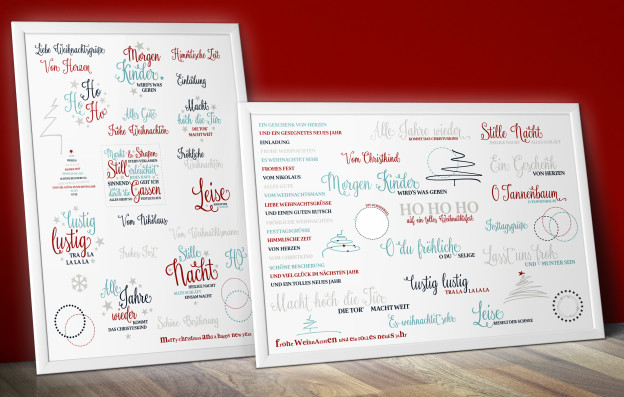 Liebe Weihnachtsgrüße
Von Herzen
Morgen
Kinder
WIRD'S WAS
GEBEN
Himmlische Zeit
Einladung
Ho
Ho
Ho
Alles Gute
Macht
hoch die Tür
DIE TOR' MACHT
WEIT
Frohe Weihnachten
Markt & Straßen
STEH'N VERLASSEN
Still erleuchtet
JEDES HAUS
SINNEND GEH' ICH
DURCH DIE Gassen
ALLES SIEHT SO FESTLICH AUS
Fröhliche
Weihnachten
Leise
Lustig
lustig
TRA LA
LA LA LA
Von Nikolaus
Vom Weihnachtsmann
Frohes Fest
Stille
Nacht
HEILIGE NACHT
ALLES SCHLÄFT
EINSAM WACHT
HO
Alle
Jahre
wieder
KOMMT
DAS CHRISTUSKIND
Schöne Bescherung
merry christmas and a happy new year
EIN GESCHENK VON HERZEN
UND EIN GESEGNETES NEUES JAHR
EINLADUNG
FROHE WEIHNACHTEN
ES WEIHNACHTET SEHR
FROHES FEST
VOM NIKOLAUS
ALLES GUTE
VOM WEIHNACHTSMANN
LIEBE WEIHNACHTSGRÜSSE
UND EINEN GUTEN RUTSCH
FRÖHLICHE WEIHNACHTEN
FESTTAGSGRÜSSE
HIMMLISCHE ZEIT
VON HERZEN
VOM CHRISTKIND
SCHÖNE BESCHERUNG
UND VIEL GLÜCK IM NÄCHSTEN JAHR
UND EIN TOLLES NEUES JAHR
Alle Jahre wieder
KOMMT DAS CHRISTUSKIND
Stille Nacht
Vom Christkind
Ein Geschenk
VON HERZEN
Morgen Kinder
WIRD'S WAS GEBEN
O Tannenbaum
HO HO HO
auf ein tolles Weihnachtsfest
Festtagsgrüße
O du fröhliche
O DU SELIGE
Lasst uns froh
UND MUNTER SEIN
Lustig lustig
TRA LA LA LA LA
Macht hoch die Tür
DIE TOR' MACHT WEIT
Es weihnachtet sehr
Leise
RIESELT DER SCHNEE
frohe Weihnachten und ein tolles neues Jahr